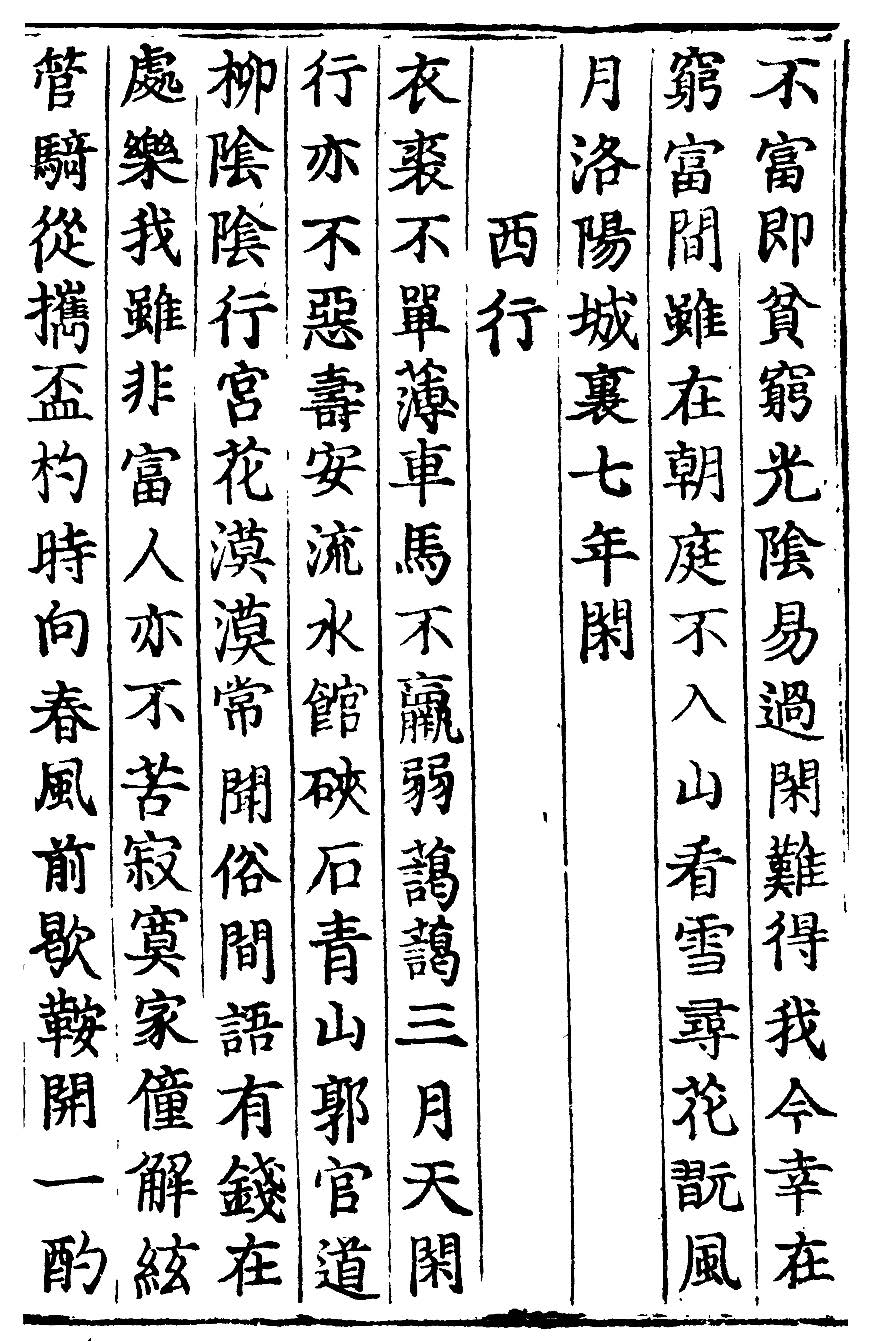 不富即貧窮光陰易過閑難得我今幸在
窮富間雖在朝庭不入山看雪尋花翫風
月洛陽城裏七年閑
西行
衣裘不單薄車馬不羸弱藹藹三月天閑
行亦不惡壽安流水館硤石青山郭官道
柳陰陰行宮花漠漠常聞俗間語有錢在
處樂我雖非富人亦不苦寂寞家僮解絃
管騎從攜盃杓時向春風前歇鞍開一酌